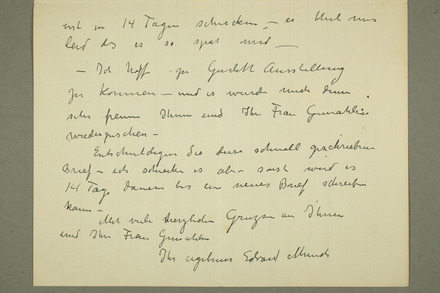 erst in 14 Tagen schicken, – es thut mir
leid das es so spät wird –
– Ich hoff zu Gurlitt Ausstellung
zu kommen – und es würde mich dann
sehr freuen Ihnen und Ihr Frau Gemahlin
wiederzusehen –
Entschuldigen Sie diese schnell geschriebene
Brief – ich schicke es aber sonst wird es
14 Tage dauern bis ein neues Brief schreiben
kann –
Mit viele herzlichen Grüssen an Ihnen
und Ihr Frau Gemahlin
Ihr ergebener Edvard Munch